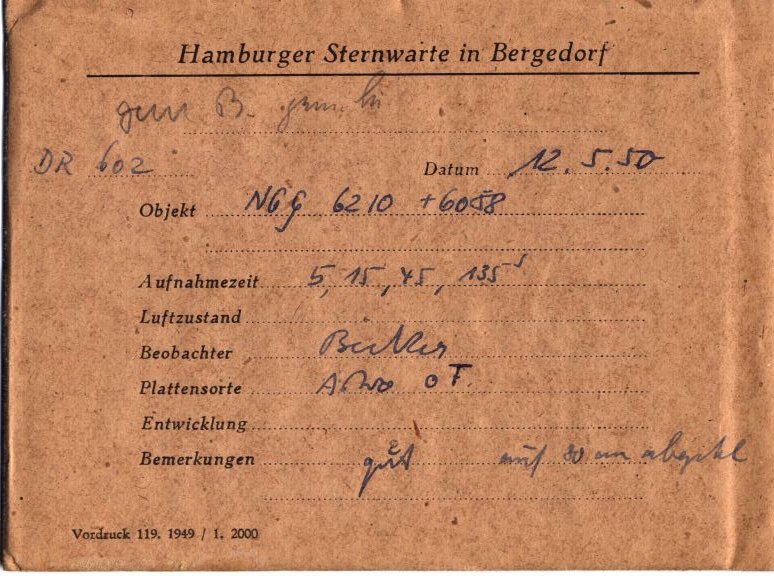 Hamburger Sternwarte in Bergedorf
B.
DR 602 Datum 12.5.50
Objekt NGC 6210 + 6058
Aufnahmezeit 5, 15, 45, 135 s
Luftzustand
Beobachter Becker
Plattensorte
Entwicklung
Bemerkungen gut auf
Vordruck 119. 1949 / 1. 2000